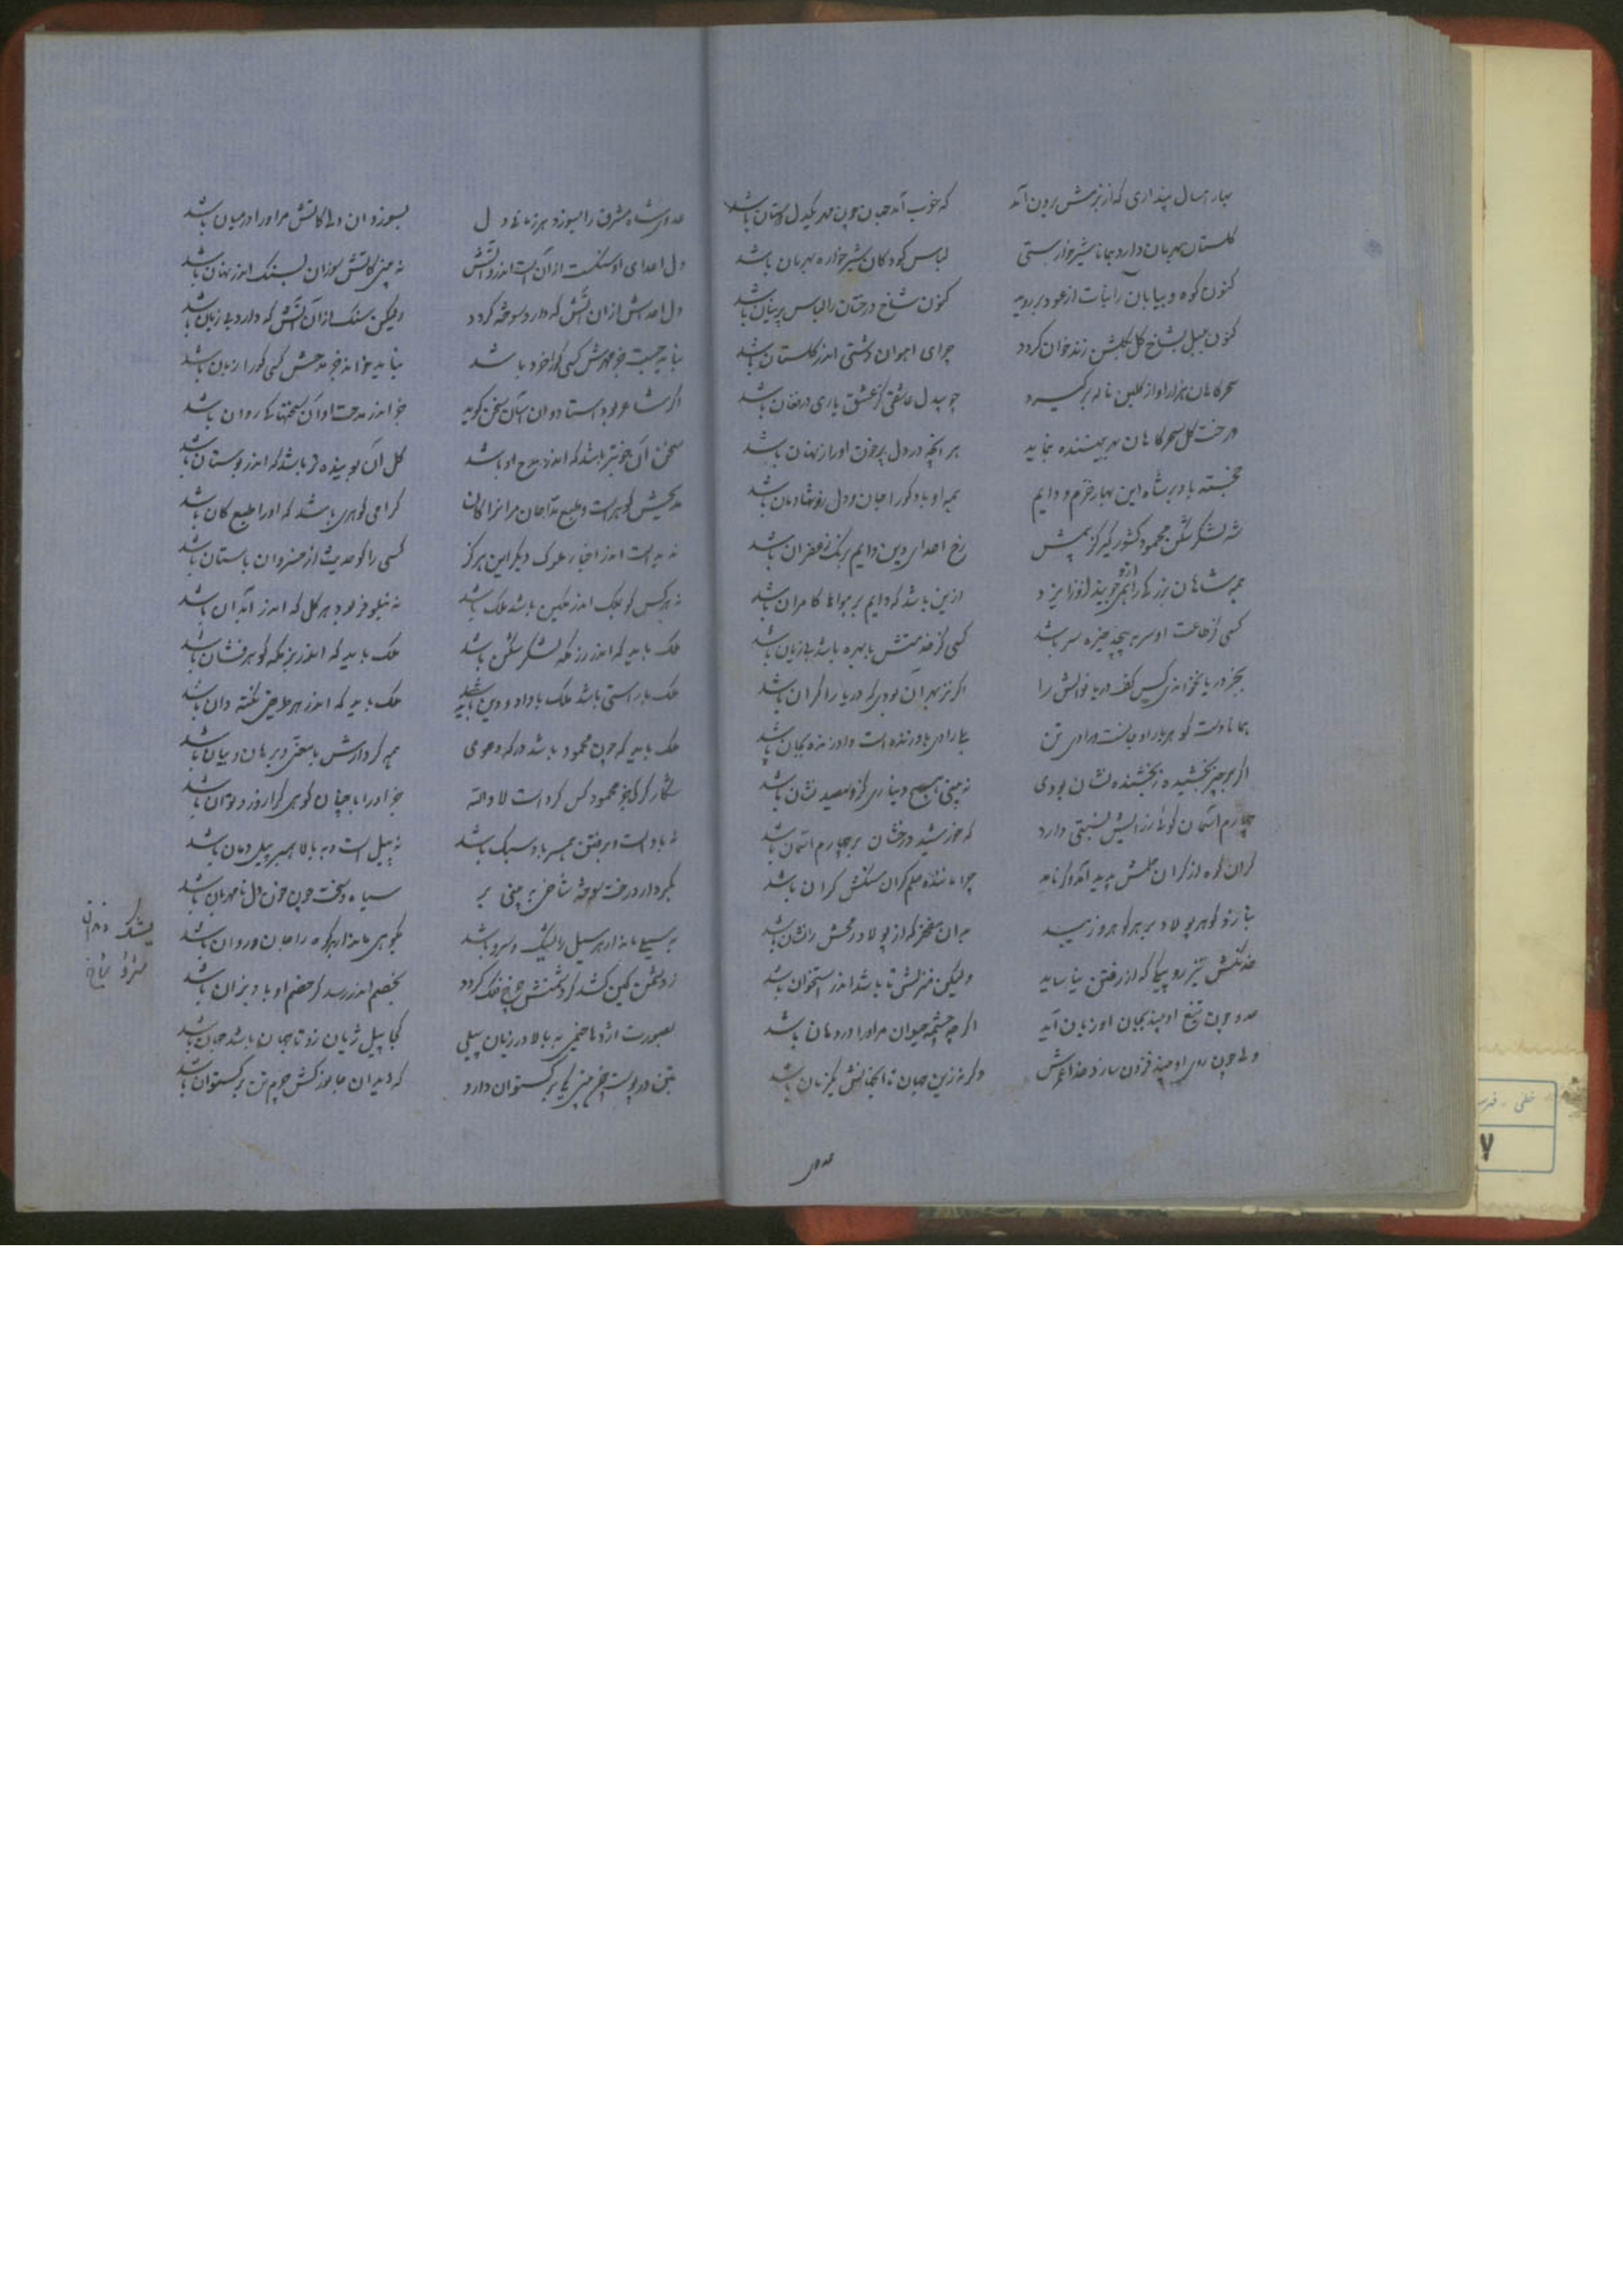 بهار امسال پنداری که از بزمش برون آمد
که خوب آمد جهان چون مهر یکدل دوستان باشد
گلستان بهرمان دارد همانا شیر خوارستی
لباس کودکان شیر خواره بهرمان باشد
کنون کوه و بیابان را نبات از عود بر روید
کنون شاخ درختان را لباس پرنیان باشد
کنون بلبل بشاخ گل بگلشن زند خوان گردد
چرای اهوان دشتی اندر گلستان باشد
سحر گاهان هزار اواز گلبن ناله برگیرد
چو بیدل عاشقی کز عشق یاری در فغان باشد
درخت گل سحرگاهان بهر بیننده بنماید
هر انچه در دل پر خون او راز نهان باشد
خجسته باد بر شاه این بهار خرم و دایم
همیدو باد کو را جان و دل زو شادمان باشد
شه لشکر شکن محمود کشور گیر کز بیمش
رخ اعدای دین دایم برنگ زعفران باشد
همه شاهان بزرگی را ازو جویند
ازین باشد که دایم بر هواها کامران باشد
کسی کز طاعت او سر بپیچد خیره سر باشد
کسی کز خدمتش با بهره باشد بی زیان باشد
بجز دریا نخواند کس کف دریا نوالش را
اگر نز بهر آن بودی که دریا را کران باشد
همانا دست گو هر بار او جانست و رادی تن
بلی رادی بدو زنده است و او زنده بجان باشد
اگر بر چیز بخشیده ز بخشنده نشان بودی
نه بینی هیچ دیناری کز و صد نشان باشد
چهارم اسمان گوئی ز رایش نسبتی دارد
که خورشید درخشان بر چهارم اسمان باشد
گران کوه از گران حلمش پدید آمد وگرنه
چرا ماننده حلم گران سنگش گران باشد
بنازد گوهر پولاد بر هر گوهر و زیبد
بدان مفخر که از پولاد رمحش را نشان باشد
خدنگش تیز رو پیکی که از رفتن نیاساید
ولیکن منزلش تا باشد اندر استخوان باشد
عدو چون تیغ او بیند بجان او زیان آید
اگر چه چشمه حیوان مر او را در دهان باشد
ولی چون روی او بیند فزون سازد خدا عمرش
وگر نه زین جهان تا آنجهانش یکزمان باشد
عدوی
عدوی شاه مشرق را بسوزد هر زمانی دل
بسوزد ان دلی کاتش مر او را در میان باشد
دل اعدای او سنگست از آن است اندرو آتش
نه بینی کاتش سوزان بسنگ اندر نهان باشد
دل اعداش از ان آتش که دارد سوخته گردد
ولیکن سنگ از آن آتش که دارد بی زیان باشد
نباید جست جز مهرش کسی کو را خرد باشد
نباید خواند جز مدحش کسی کو را زبان باشد
اگر شاعر بود استاد و ان اسان سخن گوید
جز اندر مدحت او آن سخنها کی روان باشد
سخن آن خوبتر باشد که اندر مدح او باشد
گل آن بوینده تر باشد که اندر بوستان باشد
مدیحش گوهرست و طبع مداحان مر انرا کان
گرامی گوهری باشد که او را طبع کان باشد
ندیدست اندر اخبار ملوک دیگر این هرگز
کسی را کو حدیث از خسروان باستان باشد
نه هر کس کو بملک اندر مکین باشد ملک باشد
نه نیلوفر بود هر گل که اندر آبدان باشد
ملک باید که اندر رزمگه لشکر شکن باشد
ملک باید که اندر بزمگه گوهر فشان باشد
ملک با راستی باشد ملک با داد و دین باشد
ملک باید که اندر هر طریقی نکته دان باشد
ملک باید که چون محمود باشد در که دعوی
همه کردارش با معنی و برهان و بیان باشد
شکار کرگ جز محمود کس کرده است لا والله
جز او را با چنان کوهی کرا زور و توان باشد
نه باد است و برفتن همبر باد سبک باشد
نه پیل است و به بالا همبر پیل دمان باشد
بکردار درخت سوخته شاخی به بینی بر
سیاه و سخت چون خون دل نامهربان باشد
به سیلی ماند ار هر سیل را یشک و سرو باشد
بکوهی ماند ار هر کوه را جان و روان باشد
ز دشمن کین کشد گر دشمنش چرخ فلک گردد
بخصم اندر رسد گر خصم او باد بزان باشد
بصورت اژدها خیمی به بالا در زیان پیلی
کجا پیل ژیان زو تا جهان باشد جهان باشد
بتن در پوست بینی کی بر گستوان دارد
که دید ان جانور کش چرم تن بر گستوان باشد
یشک دندان
سرو شاخ
خطی - فهرست
۷